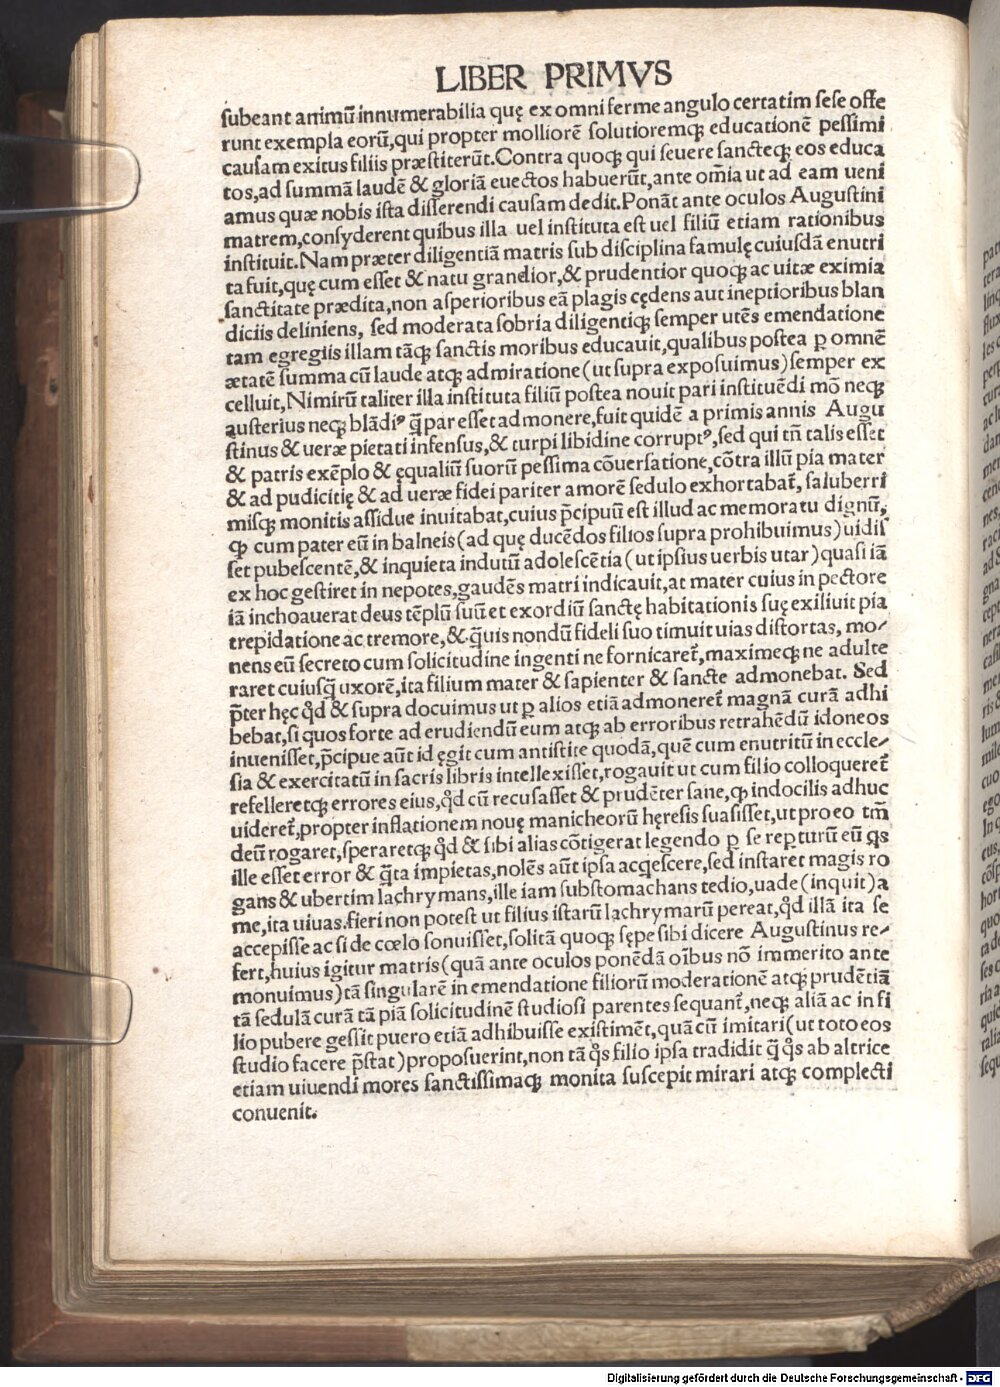 LIBER PRIMVS
subeant animū innumerabilia quę ex omni ferme angulo certatim sese offe
runt exempla eorū, qui propter molliorē solutioremqꝫ educationē pessimi
causam exitus filiis præstiterūt. Contra quoqꝫ qui seuere sancteqꝫ eos educa
tos, ad summā laudē & gloriā euectos habuerūt, ante om̄ia ut ad eam ueni
amus quæ nobis ista disserendi causam dedit. Ponāt ante oculos Augustini
matrem, consyderent quibus illa uel instituta est uel filiū etiam rationibus
instituit. Nam præter diligentiā matris sub disciplina famulę cuiusdā enutri
ta fuit, quę cum esset & natu grandior, & prudentior quoqꝫ ac uitæ eximia
sanctitate prædita, non asperioribus eā plagis cędens aut ineptioribus blan
diciis deliniens, sed moderata sobria diligentiqꝫ semper utēs emendatione
tam egregiis illam tāqꝫ sanctis moribus educauit, qualibus postea ꝑ omnē
ætatē summa cū laude atqꝫ admiratione (ut supra exposuimus) semper ex
celluit, Nimirū taliter illa instituta filiū postea nouit pari instituēdi mō neqꝫ
austerius neqꝫ blādiꝰ q̄ par esset admonere, fuit quidē a primis annis Augu
stinus & ueræ pietati infensus, & turpi libidine corruptꝰ, sed qui tn̄ talis esset
& patris exēplo & ęqualiū suorū pessima cōuersatione, cōtra illū pia mater
& ad pudicitię & ad ueræ fidei pariter amorē sedulo exhortabat̄, saluberri
misqꝫ monitis assidue inuitabat, cuius p̄cipuū est illud ac memoratu dignū,
ꝙ cum pater eū in balneis (ad quę ducēdos filios supra prohibuimus) uidis
set pubescentē, & inquieta indutū adolescētia (ut ipsius uerbis utar) quasi iā
ex hoc gestiret in nepotes, gaudēs matri indicauit, at mater cuius in pectore
iā inchoauerat deus tēplū suū et exordiū sanctę habitationis suę exiliuit pia
trepidatione ac tremore, & q̄uis nondū fideli suo timuit uias distortas, mo/
nens eū secreto cum solicitudine ingenti ne fornicaret̄, maximeqꝫ ne adulte
raret cuiusq̄ uxorē, ita filium mater & sapienter & sancte admonebat. Sed
p̄ter hęc qd̄ & supra docuimus ut ꝑ alios etiā admoneret̄ magnā curā adhi
bebat, si quos forte ad erudiendū eum atqꝫ ab erroribus retrahēdū idoneos
inuenisset, p̄cipue aūt id ęgit cum antistite quodā, quē cum enutritū in eccle/
sia & exercitatū in sacris libris intellexisset, rogauit ut cum filio colloqueret̄
refelleretqꝫ errores eius, qd̄ cū recusasset & prudēter sane, ꝙ indocilis adhuc
uideret̄, propter inflationem nouę manicheorū hęresis suasisset, ut pro eo tm̄
deū rogaret, speraretqꝫ qd̄ & sibi alias cōtigerat legendo ꝑ se repturū eū q̄s
ille esset error & q̄ta impietas, nolēs aūt ipsa acq̄escere, sed instaret magis ro
gans & ubertim lachrymans, ille iam substomachans tedio, uade (inquit) a
me, ita uiuas. fieri non potest ut filius istarū lachrymarū pereat, qd̄ illā ita se
accepisse ac si de cœlo sonuisset, solitā quoqꝫ sępe sibi dicere Augustinus re/
fert, huius igitur matris (quā ante oculos ponēdā oībus nō immerito ante
monuimus) tā singularē in emendatione filiorū moderationē atqꝫ prudētiā
tā sedulā curā tā piā solicitudinē studiosi parentes sequant̄, neqꝫ aliā ac in fi
lio pubere gessit puero etiā adhibuisse existimēt, quā cū imitari (ut toto eos
studio facere p̄stat) proposuerint, non tā q̄s filio ipsa tradidit q̄ q̄s ab altrice
etiam uiuendi mores sanctissimaqꝫ monita suscepit mirari atqꝫ complecti
conuenit.
Digitalisierung gefördert durch die Deutsche Forschungsgemeinschaft - DFG